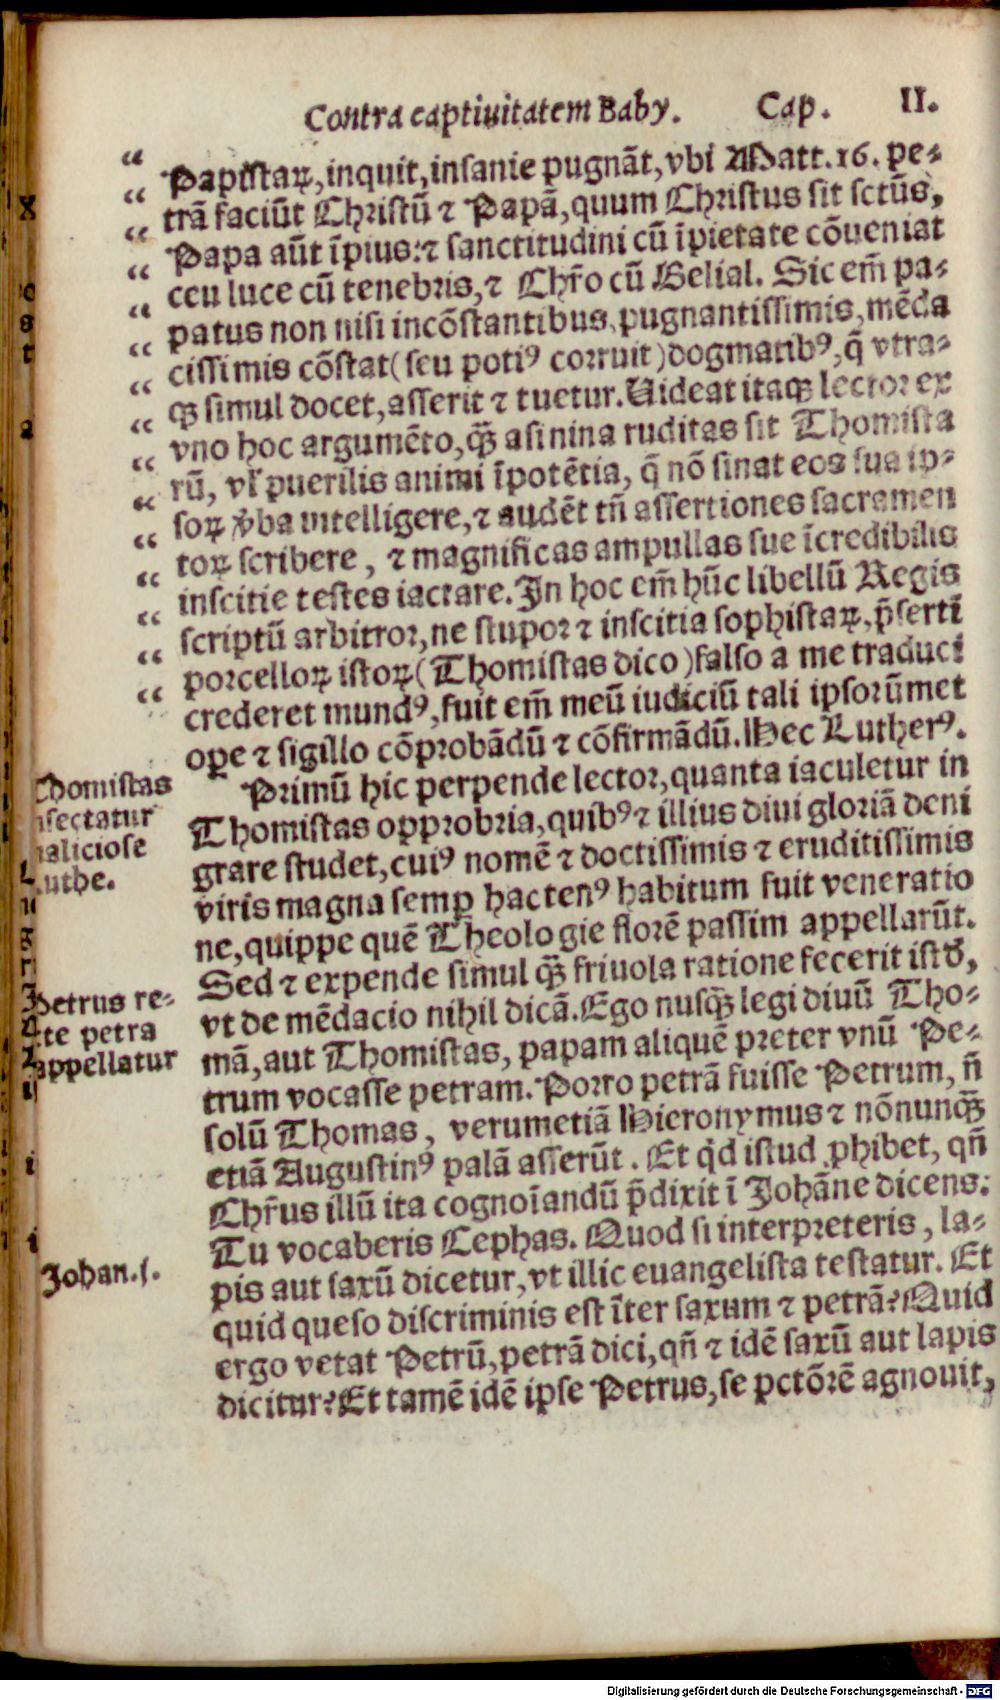 Contra captiuitatem Baby. Cap. II.
“ Papistaꝝ, inquit, insanie pugnāt, vbi Matt. 16. pe⸗
“ trā faciūt Christū ⁊ Papā, quum Christus sit sctūs,
“ Papa aūt īpius: ⁊ sanctitudini cū īpietate cōueniat
“ ceu luce cū tenebris, ⁊ Chr̄o cū Belial. Sic em̄ pa⸗
“ patus non nisi incōstantibus, pugnantissimis, mēda
“ cissimis cōstat (seu potiꝰ corruit) dogmatibꝰ, q̄ vtra⸗
“ qꝫ simul docet, asserit ⁊ tuetur. Uideat itaqꝫ lector ex
“ vno hoc argumēto, qꝫ̄ asinina ruditas sit Thomista
“ rū, vl̄ puerilis animi īpotētia, q̄ nō sinat eos sua ip⸗
“ soꝝ v̄ba intelligere, ⁊ audēt tn̄ assertiones sacramen
“ toꝝ scribere, ⁊ magnificas ampullas sue īcredibilis
“ inscitie testes iactare. In hoc em̄ hūc libellū Regis
“ scriptū arbitror, ne stupor ⁊ inscitia sophistaꝝ, p̄sertī
“ porcelloꝝ istoꝝ (Thomistas dico) falso a me traduci
“ crederet mundꝰ, fuit em̄ meū iudiciū tali ipsorūmet
ope ⁊ sigillo cōprobādū ⁊ cōfirmādū. Hec Lutherꝰ.
Primū hic perpende lector, quanta iaculetur in
Thomistas opprobria, quibꝰ ⁊ illius diui gloriā deni
grare studet, cuiꝰ nomē ⁊ doctissimis ⁊ eruditissimis
viris magna semꝑ hactenꝰ habitum fuit veneratio
ne, quippe quē Theologie florē passim appellarūt.
Sed ⁊ expende simul qꝫ̄ friuola ratione fecerit istđ,
vt de mēdacio nihil dicā. Ego nusqꝫ̄ legi diuū Tho⸗
mā, aut Thomistas, papam aliquē preter vnū Pe⸗
trum vocasse petram. Porro petrā fuisse Petrum, n̄
solū Thomas, verumetiā Hieronymus ⁊ nōnunqꝫ̄
etiā Augustinꝰ palā asserūt. Et qd̄ istud ꝓhibet, qn̄
Chr̄us illū ita cognoīandū p̄dixit ī Johāne dicens:
Tu vocaberis Cephas. Quod si interpreteris, la⸗
pis aut saxū dicetur, vt illic euangelista testatur. Et
quid queso discriminis est īter saxum ⁊ petrā? Quid
ergo vetat Petrū, petrā dici, qn̄ ⁊ idē saxū aut lapis
dicitur? Et tamē idē ipse Petrus, se pctōrē agnouit,
Thomistas
sectatur
aliciose
uthe.
Petrus re⸗
te petra
appellatur
Johan. 1.
Digitalisierung gefördert durch die Deutsche Forschungsgemeinschaft - DFG